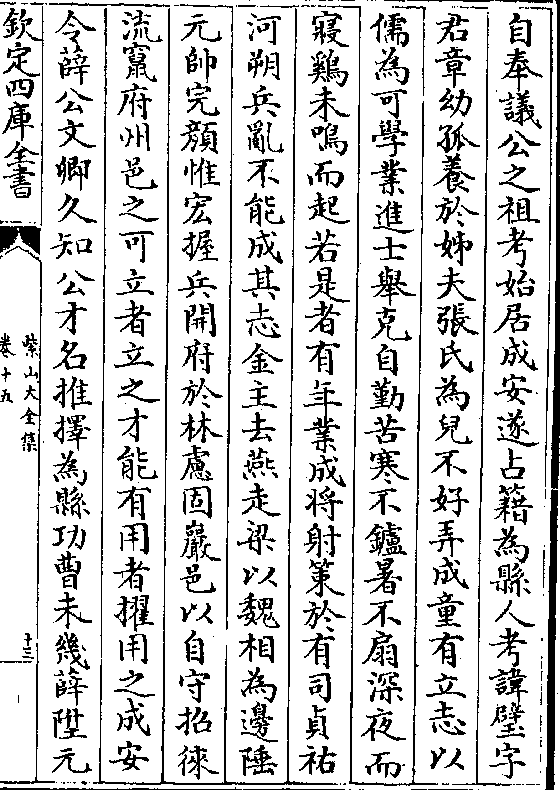 自奉議公之祖考始居成安遂占籍為縣人考諱璧字
君章幼孤養於姊夫張氏為兒不好弄成童有立志以
儒為可學業進士舉克自勤苦寒不鑪暑不扇深夜而
寢鷄未鳴而起若是者有年業成将射策於有司貞祐
河朔兵亂不能成其志金主去燕走梁以魏相為邊陲
元帥完顔惟宏握兵開府於林慮固巖邑以自守招徠
流竄府州邑之可立者立之才能有用者擢用之成安
令薛公文卿久知公才名推擇為縣功曹未幾薛陞元
欽定四庫全書
紫山大全集
卷十五
十三